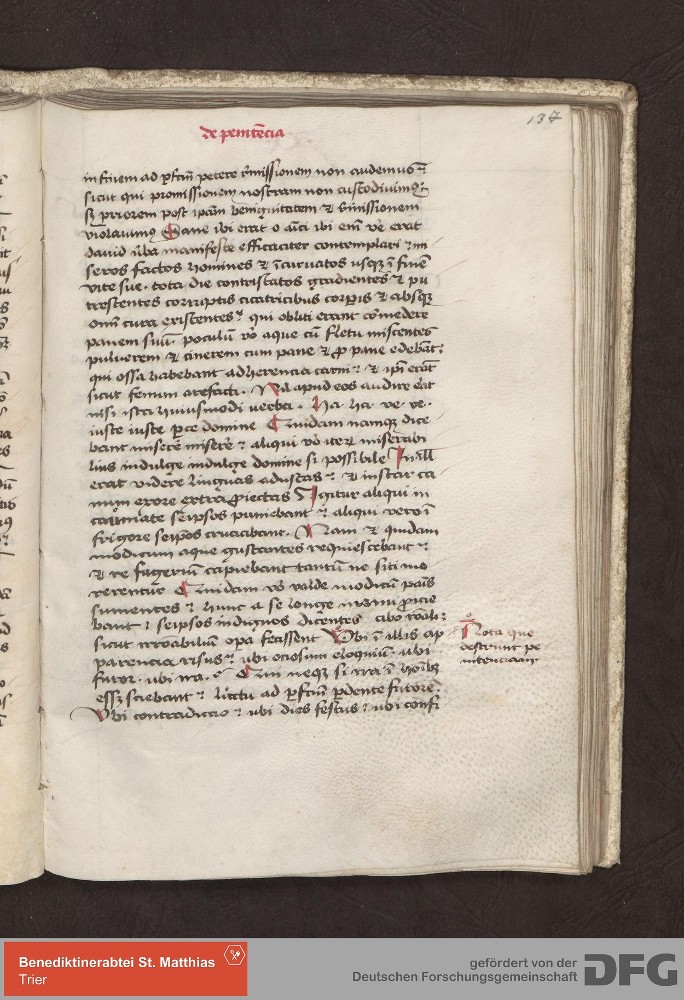 de penitēcia
137
in finem ad pfctm petere rmissionem non audemus
sicut qui promissionem nostram non custodiuimus
sz priorem post ipam benignitatem et rmissionem
violauimus Sane ibi erat o aūci ibi eni ve erat
dauid uba manifeste efficaciter contemplari mi
seros factos homines et icuruatos usqz i fine
vite sue tota die contristatos gradientes et pu
trescentes corruptis cicatricibus corpis et absqz
omi cura existentes qui obliti erant comedere
panem suu poculu vo aque cu fletu miscentes
puluerem et cinerem cum pane et p pane edebāt
qui ossa habebant adherencia carni et ipi erāt
sicut fenum arefacti Nil apud eos audire erat
nisi ista huiusmodi verba Ha ha ve ve
iuste iuste parce domine Quidam namqz dice
bant miserē miserē et aliqui vo iterū miserabi
lius indulge indulge domine si possibile In ill
erat videre linguas adustas et instar ca
num exore extra piectas Igitur aliqui in
caumate seipsos puniebant aliqui vero i
frigore seipos cruciabant Nam et quidam
modicum aque gustantes requiescebant
et re fugeriū capiebant tantū ne siti mo
rerentur Quidam vo valde modicū panis
sumentes hunc a se longe manu picie
bant seipsos indignos dicentes cibo roāli
sicut irroabilium opa fecissent Vbi i illis ap
parencia risus ubi ociosum eloquium ubi
furor ubi ira Qui neqz si ira i hoibz
esset sciebant luctu ad pfctm pdente furore
Vbi contradictio ubi dies festus ubi confi
Nota que
destruut pe
nitenciam
Benediktinerabtei St. Matthias
Trier
gefördert von der
Deutschen Forschungsgemeinschaft
DFG